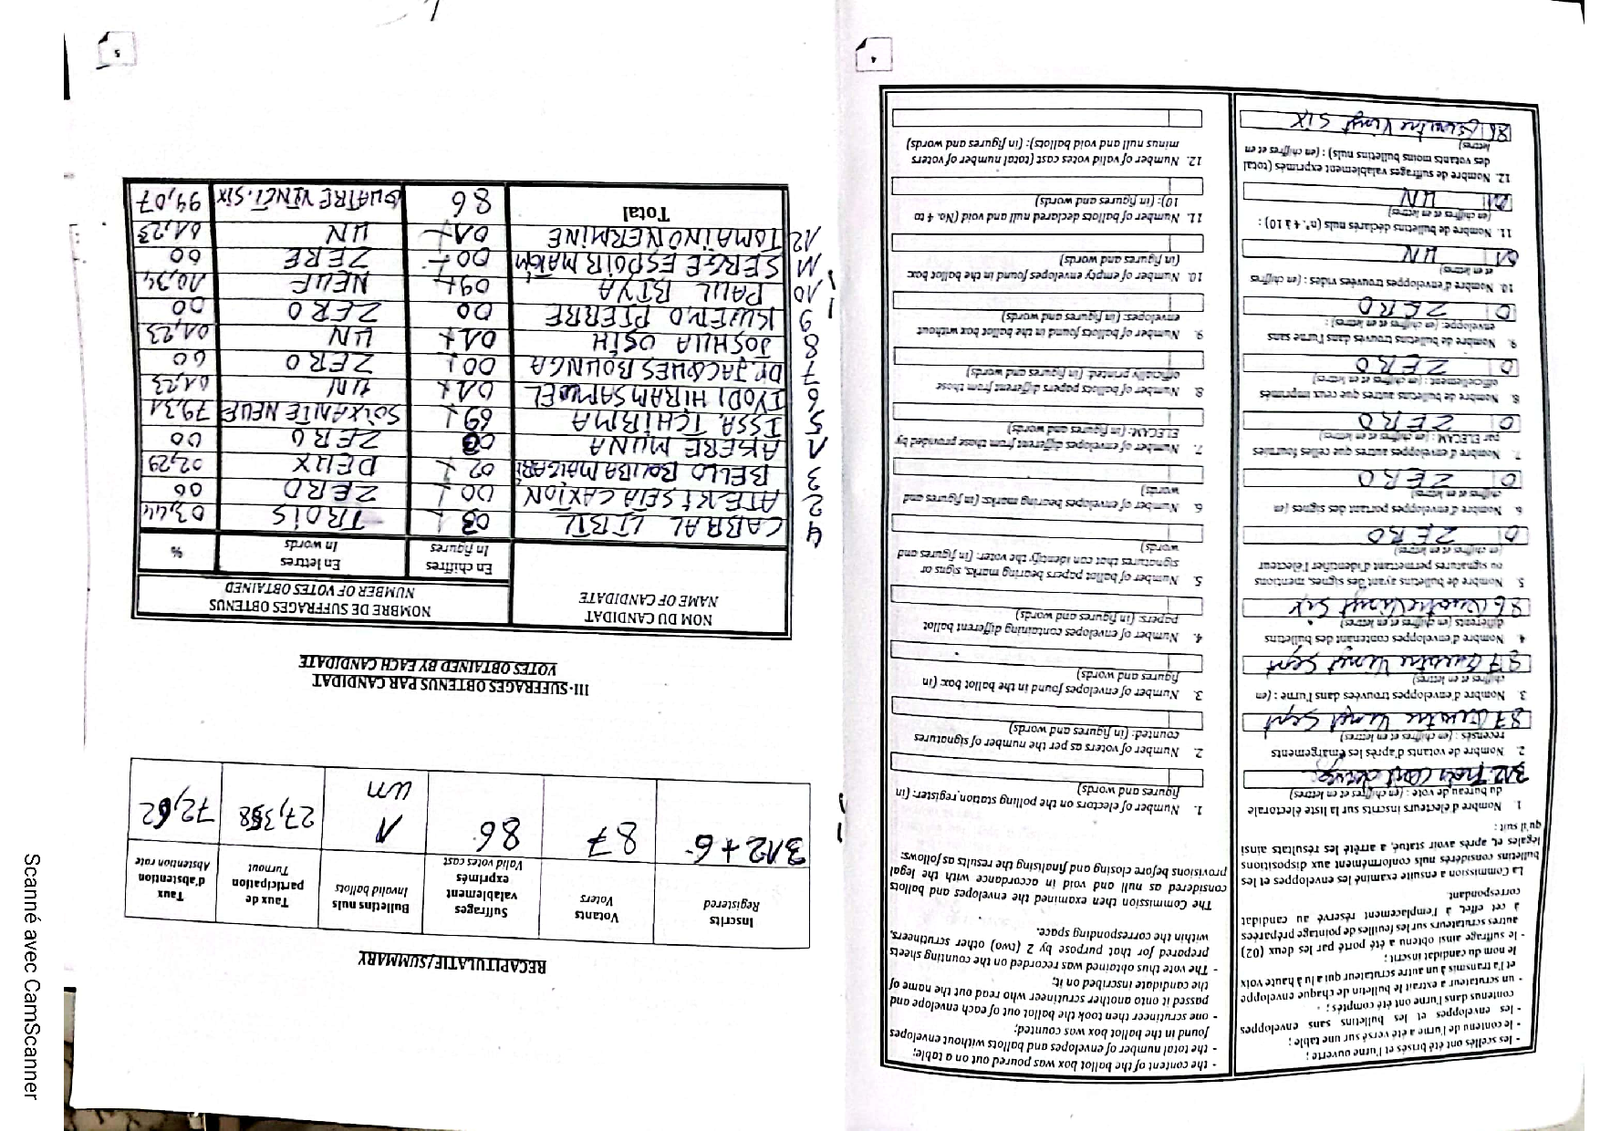 4
- les scellés ont été brisés et l'urne ouverte ;
- le contenu de l'urne a été versé sur une table ;
- les enveloppes et les bulletins sans enveloppes contenus dans l'urne ont été comptés ;
- un scrutateur a extrait le bulletin de chaque enveloppe et l'a transmis à un autre scrutateur qui a lu à haute voix le nom du candidat inscrit ;
- le suffrage ainsi obtenu a été porté par les deux (02) autres scrutateurs sur les feuilles de pointage préparées à cet effet, à l'emplacement réservé au candidat correspondant.
La Commission a ensuite examiné les enveloppes et les bulletins considérés nuls conformément aux dispositions légales et, après avoir statué, a arrêté les résultats ainsi qu'il suit :
1 Nombre d'électeurs inscrits sur la liste électorale du bureau de vote : (en chiffres et en lettres)
312 Trois cent douze
2. Nombre de votants d'après les émargements recensés : (en chiffres et en lettres)
87 Quatre Vingt Sept
3 Nombre d'enveloppes trouvées dans l'urne : (en chiffres et en lettres)
87 Quatre Vingt Sept
4. Nombre d'enveloppes contenant des bulletins différents (en chiffres et en lettres)
86 Quatre Vingt Six
5 Nombre de bulletins ayant des signes, mentions ou signatures permettant d'identifier l'électeur (en chiffres et en lettres)
0 ZERO
6 Nombre d'enveloppes portant des signes (en chiffres et en lettres)
0 ZERO
7. Nombre d'enveloppes autres que celles fournies par ELECAM : (en chiffres et en lettres)
0 ZERO
8. Nombre de bulletins autres que ceux imprimés officiellement : (en chiffres et en lettres)
0 ZERO
9. Nombre de bulletins trouvés dans l'urne sans enveloppe: (en chiffres et en lettres) :
0 ZERO
10. Nombre d'enveloppes trouvées vides : (en chiffres et en lettres)
01 UN
11. Nombre de bulletins déclarés nuls (n°. 4 à 10) : (en chiffres et en lettres)
01 UN
12. Nombre de suffrages valablement exprimés (total des votants moins bulletins nuls) : (en chiffres et en lettres)
86 Quatre Vingt Six
- the content of the ballot box was poured out on a table;
- the total number of envelopes and ballots without envelopes found in the ballot box was counted;
- one scrutineer then took the ballot out of each envelope and passed it onto another scrutineer who read out the name of the candidate inscribed on it;
- The vote thus obtained was recorded on the counting sheets prepared for that purpose by 2 (two) other scrutineers, within the corresponding space.
The Commission then examined the envelopes and ballots considered as null and void in accordance with the legal provisions before closing and finalising the results as follows:
1. Number of electors on the polling station register: (in figures and words)
2. Number of voters as per the number of signatures counted: (in figures and words)
3. Number of envelopes found in the ballot box: (in figures and words)
4. Number of envelopes containing different ballot papers: (in figures and words)
5. Number of ballot papers bearing marks, signs or signatures that can identify the voter: (in figures and words)
6. Number of envelopes bearing marks: (in figures and words)
7. Number of envelopes different from those provided by ELECAM: (in figures and words)
8. Number of ballots papers different from those officially printed: (in figures and words)
9. Number of ballots found in the ballot box without envelopes: (in figures and words)
10. Number of empty envelopes found in the ballot box: (in figures and words)
11. Number of ballots declared null and void (No. 4 to 10): (in figures and words)
12. Number of valid votes cast (total number of voters minus null and void ballots): (in figures and words)
RECAPITULATIF/SUMMARY
Inscrits Registered | Votants Voters | Suffrages valablement exprimés Valid votes cast | Bulletins nuls Invalid ballots | Taux de participation Turnout | Taux d'abstention Abstention rate
312+6 | 87 | 86 | 1 un | 27,358 | 72,62
III-SUFFRAGES OBTENUS PAR CANDIDAT
VOTES OBTAINED BY EACH CANDIDATE
NOM DU CANDIDAT NAME OF CANDIDATE | NOMBRE DE SUFFRAGES OBTENUS NUMBER OF VOTES OBTAINED
En chiffres In figures | En lettres In words | %
4 CABRAL LIBII 03 TROIS 03,44
2 ATEKI SETA CAXTON 00 ZERO 00
3 BELLO BOUBA MAIGARI 02 DEUX 02,29
1 AKERE MUNA 00 ZERO 00
5 ISSA TCHIRMA 69 SOIXANTE NEUF 79,31
6 IYODI HIRAM SAMUEL 01 UN 01,23
7 Dr. JACQUES BOUNGA 00 ZERO 00
8 JOSHUA OSIH 01 UN 01,23
9 KWEMO PIERRE 00 ZERO 00
10 PAUL BIYA 09 NEUF 10,34
11 SERGE ESPOIR MATOM 00 ZERE 00
12 TOMAINO NERMINE 01 UN 01,23
Total 86 QUATRE VINGT.SIX 99,07
5
Scanné avec CamScanner